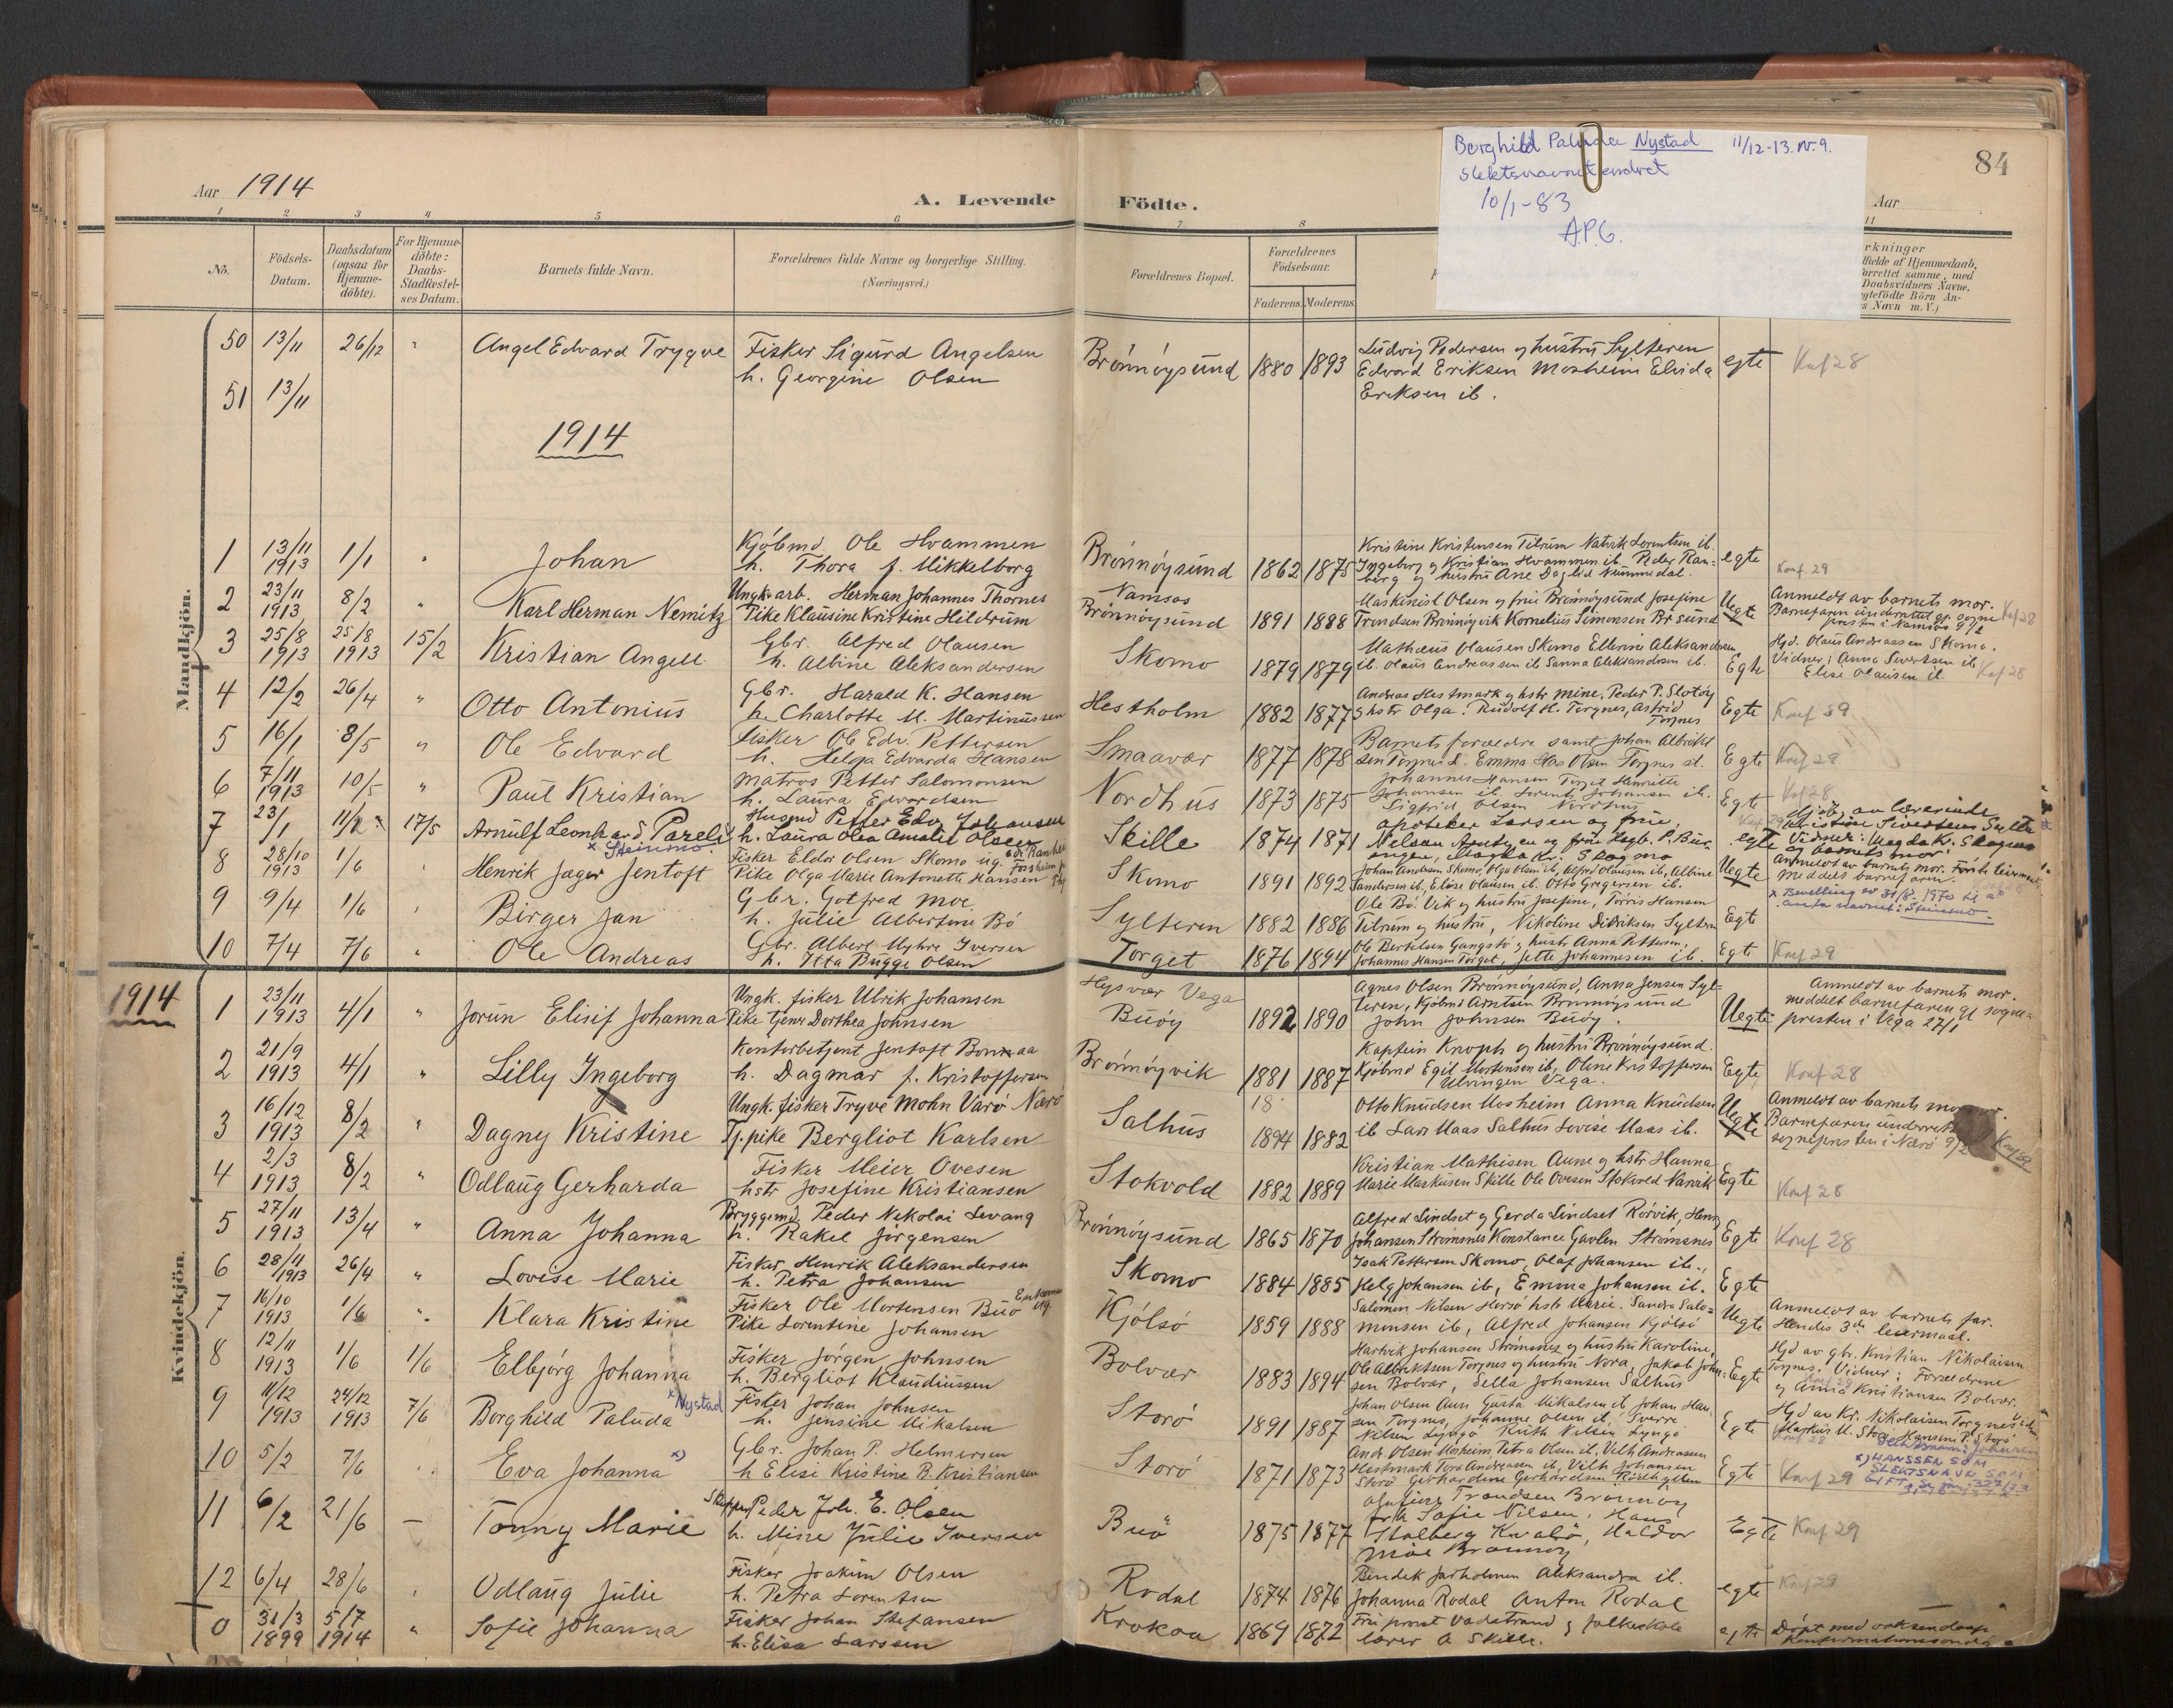 Borghild Paluda Nystad 11/12-13. nr. 9.
slektsnavnet endret
10/1-83
A.P.G.
84
Aar 1914
A. Levende Födte.
Aar
1 2 3 4 5 6 7 8 11
No.
Födsels-Datum.
Daabsdatum (ogsaa for Hjemme-döbte).
For Hjemme-döbte: Daabs-Stadfæstel-ses Datum.
Barnets fulde Navn.
Forældrenes fulde Navne og borgerlige Stilling. (Næringsvei.)
Forældrenes Bopæl.
Forældrenes Födselsaar.
Faderens. Moderens.
rkninger
Mandkjön.
50 13/11 26/12 " Angel Edvard Trygve
Fisker Sigurd Angelsen
h. Georgine Olsen
Brönnöysund 1880 1893
Ludvig Pedersen og hustru Sylteren
Edvard Eriksen Mosheim Elvida
Eriksen ib.
egte
Konf 28
51 13/11
1914
1 13/11 1913 1/1 " Johan
Kjöbmd. Ole Hvammen
h. Thora f. Mikkelborg
Brönnöysund 1862 1875
Kristine Kristensen Tilrum
Ingeborg og Kristian Hvammen ib. Peder Ran=
berg og hustru Ane
egte
Konf 29
2 23/11 1913 8/2 " Karl Herman Nemitz
Ungk. arb. Herman Johannes Thornes
Pike Klausine Kristine Hildrum
Namsos
Brönnöysund 1891 1888
Maskinist Olsen og frue Brönnöysund Josefine
Trondsen Brönnöyvik Kornelius Simonsen Br sund
Uegte
Anmeldt av barnets mor.
Barnefaren underrettet gj. sogne
presten i Namsos 9/2
Konf 28
3 25/8 1913 25/8 1913 15/2 Kristian Angell
Gbr. Alfred Olausen
h. Albine Aleksandersen
Skomo 1879 1879
Mathæus Olausen Skomo Ellerine Aleksandersen
ib. Olaus Andreassen ib Sanna Aleksandersen ib.
Egte
Hjd. Olaus Andreassen Skomo.
Vidner: Anna Sivertsen ib
Elise Olausen ib.
Konf 28
4 12/2 26/4 " Otto Antonius
Gbr. Harald K. Hansen
h. Charlotte M. Martinussen
Hestholm 1882 1877
Andreas Hestmark og hstr Mine, Peder P. Slotöy
g hstr Olga. Rudolf H. Torgnes, Astrid
Torgnes
Egte
Konf 29
5 16/1 8/5 " Ole Edvard
Fisker Ole Edv. Pettersen
h. Helga Edvarda Hansen
Smaavær 1877 1878
Barnets forældre samt Johan Albrikt
sen Torgnes
Egte
Konf 29
6 7/11 1913 10/5 " Paul Kristian
Matros Petter Salomonsen
h. Laura Edvardsen
Nordhus 1873 1875
Johannes Hansen Torget Henriette
Johansen ib. Lorents Johansen ib.
Sigfrid Olsen Nordhus
Egte
Konf 28
7 23/1 11/2 17/5 Arnulf Leonhard Pareli
Husmd Petter Edv. Johansen
h. Laura Olea Amalie Olsen
Skille 1874 1871
Apoteker Larsen og frue,
egte
8 28/10 1913 1/6 Henrik Jæger Jentoft
x Steinmo.
Fisker Eldor Olsen Skomo ug.
Pike Olga Marie Antonette Hansen
Skomo 1891 1892
Johan Andersen Skomo, Olga Olsen ib, Alfred Olausen ib, Albine
Sandersen ib, Elise Olausen ib. Otto Gregersen ib.
Uegte
Anmeldt av barnets mor.
meddelt barnefaren.
x Bevilling av 31/8. 1970 til å
anta navnet: Steinmo
9 9/4 1/6 Birger Jan
Gbr. Gotfred Moe
h. Julie Albertine Bö
Sylteren 1882 1886
Ole Bö. Vik og hustru Josefine, Torris Hansen
Tilrum og hustru, Nikoline Didriksen Sylteren
Egte
10 7/4 7/6 " Ole Andreas
Gbr. Albert Myhre Iversen
h. Itta Bugge Olsen
Torget 1876 1894
Ole Bertilsen Gangstö og hustr Anna Pettersen,
Johannes Hansen Torget, Jette Johannesen ib.
Egte
Konf 29
Kvindekjön.
1914
1 23/11 1913 4/1 " Jorun Elisif Johanna
Ungk. fisker Ulrik Johansen
Pike Dorthea Johnsen
Hysvær Vega
Buöy 1892 1890
Agnes Olsen Brönnöysund, Anna Jensen Syl=
teren, Kjöbmd Arntsen Brönnöysund
John Johnsen Buöy.
Uegte
Anmeldt av barnets mor.
meddelt barnefaren gj. sogne=
presten i Vega 27/1
2 21/9 1913 4/1 " Lilly Ingeborg
Kontorbetjent Jentoft Bornaa
h. Dagmar f. Kristoffersen
Brönnöyvik 1881 1887
Kaptein Knoph og hustru Brönnöysund.
Kjöbmd Egil Mortensen ib, Oline Kristoffersen
Ulvingen Vega.
Egte
Konf 28
3 16/12 1913 8/2 " Dagny Kristine
Ungk. fisker Tryve Mohn Varö Nærö
Tj. pike Bergliot Karlsen
Salhus 18 1894 1882
Otto Knudsen Mosheim Anna Knudsen
ib Lars Maas Salhus Lovise Maas ib.
Uegte
Anmeldt av barnets mor.
Barnefaren underrettet
sognepresten i Nærö 9/2
4 2/3 1913 8/2 " Odlaug Gerharda
Fisker Meier Ovesen
hstr Josefine Kristiansen
Stokvold 1882 1889
Kristian Mathisen Aune og hstr Hanna
Marie Markusen Skille Ole Ovesen Stokvold
Egte
Konf 28
5 27/11 1913 13/4 " Anna Johanna
Bryggemd. Peder Nikolai Levang
h. Rakel Jörgensen
Brönnöysund 1865 1870
Alfred Lindset og Gerda Lindset Rörvik,
Johansen Strömsnes Konstance Strömsnes
Egte
Konf 28
6 28/11 1913 26/4 " Lovise Marie
Fisker Henrik Aleksandersen
h. Petra Johansen
Skomo 1884 1885
Isak Pettersen Skomo, Olaf Johansen ib.,
Helg Johansen ib, Emma Johansen ib.
Egte
7 16/10 1913 1/6 " Klara Kristine
Fisker Ole Mortensen Buö
Pike Lorentine Johansen
Kjölsö 1859 1888
Salomon Nilsen Horsö hstr Marie. Sandra Salo=
monsen ib, Alfred Johansen Kjölsö
Uegte
Anmeldt av barnets far.
Hendes 3die leiermaal.
8 12/11 1913 1/6 1/6 Elbjörg Johanna
Fisker Jörgen Johnsen
h. Bergliot Klaudiussen
Bolvær 1883 1894
Hartvik Johansen Strömsnes og hustru Karoline,
Ole Albriktsen Torgnes og hustru Nora, Jakob John=
sen Bolvær, Sella Johansen Salhus
Egte
Hjd av gbr. Kristian Nikolaisen
Torgnes. Vidner: Forældrene
og Anna Kristiansen Bolvær.
9 11/12 1913 24/12 1913 7/6 Borghild Paluda
x Nystad
Fisker Johan Johnsen
h. Jensine Mikalsen
Storö 1891 1887
Johan Olsen Aune Gusta Mikalsen ib Johan Han
sen Torgnes, Johanne Olsen ib, Sverre
Nilsen Lyngö Ruth Nilsen Lyngö
Egte
Hjd av Kr. Nikolaisen Torgnes
10 5/2 7/6 Eva Johanna x)
Gbr. Johan P. Helmersen
h Elise Kristine B. Kristiansen
Storö 1871 1873
Andr Olsen Mosheim Petra Olsen ib, Vilh Andreassen
Hestmark Tora Andreassen ib, Vilh Johansen
Storö Gerhardine Gerhardsen
Egte
Konf 29
x) HANSSEN SOM
SLEKTSNAVN SOM
GIFT
11 6/2 21/6 — Tonny Marie
Skipper Peder Joh. E. Olsen
h. Mine Julie Iversen
Buö 1875 1877
Trondsen Brönnöy
frk Sofie Nilsen, Hans
Stolberg Kvalö, Haldor
Moe Brönnöy
Egte
Konf 29
12 6/4 28/6 Odlaug Julie
Fisker Joakim Olsen
h. Petra Lorentsen
Rodal 1874 1876
Bendik Jarholmen Aleksandra ib.
Johanna Rodal Anton Rodal
egte
Konf 29
0 31/3 1899 5/7 1914 " Sofie Johanna
Fisker Johan Stefansen
h. Elisa Larssen
Krokaa 1869 1872
Fru prost Vadstrand og folkeskole
lærer A Skille.
egte
Döpt med voksendaap
konfirmationssöndag